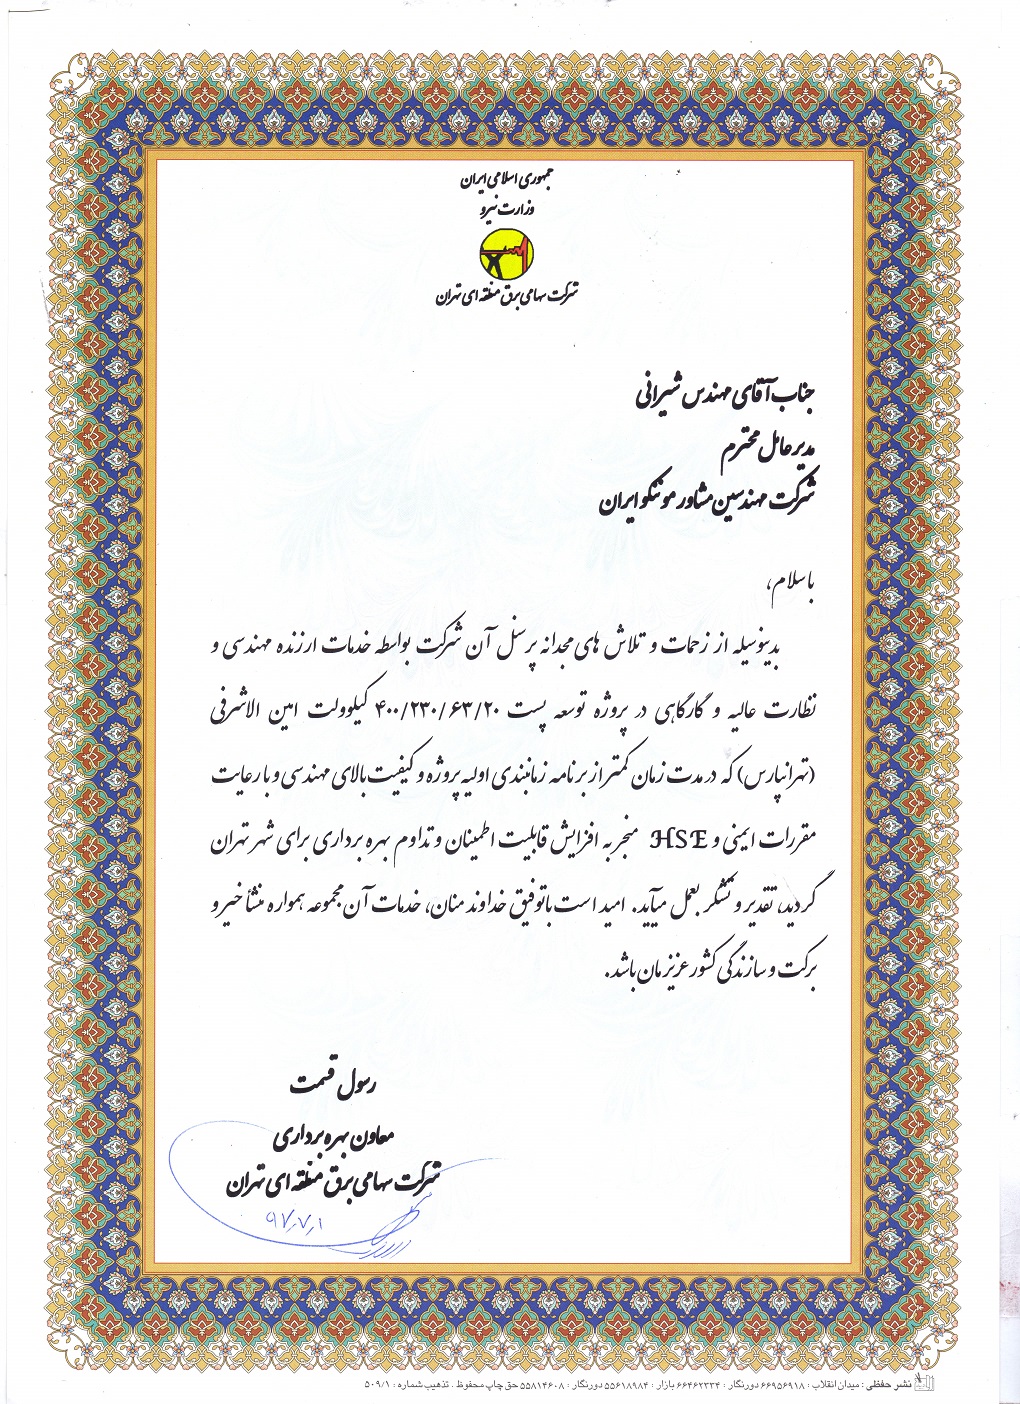 جمهوری اسلامی ایران
وزارت نیرو
شرکت سهامی برق منطقه ای تهران
جناب آقای مهندس شیرانی
مدیرعامل محترم
شرکت مهندسین مشاور موننکو ایران
با سلام،
بدینوسیله از زحمات و تلاش های مجدانه پرسنل آن شرکت بواسطه خدمات ارزنده مهندسی و
نظارت عالیه و کارگاهی در پروژه توسعه پست ۴۰۰/۲۳۰/۶۳/۲۰ کیلوولت امین الاشرفی
(تهرانپارس) که در مدت زمان کمتر از برنامه زمانبندی اولیه پروژه و کیفیت بالای مهندسی و با رعایت
مقررات ایمنی و HSE منجر به افزایش قابلیت اطمینان و تداوم بهره برداری برای شهر تهران
گردید، تقدیر و تشکر بعمل میآید. امید است با توفیق خداوند منان، خدمات آن مجموعه همواره منشأ خیر و
برکت و سازندگی کشور عزیزمان باشد.
رسول قسمت
معاون بهره برداری
شرکت سهامی برق منطقه ای تهران
۹۷٫۷٫۱
نشر حفظی : میدان انقلاب : ۶۶۹۵۶۹۱۸ دورنگار : ۶۶۴۶۲۳۳۴ بازار : ۵۵۶۱۸۹۸۴ دورنگار : ۵۵۸۱۴۶۰۸ حق چاپ محفوظ . تذهیب شماره : ۵۰۹/۱